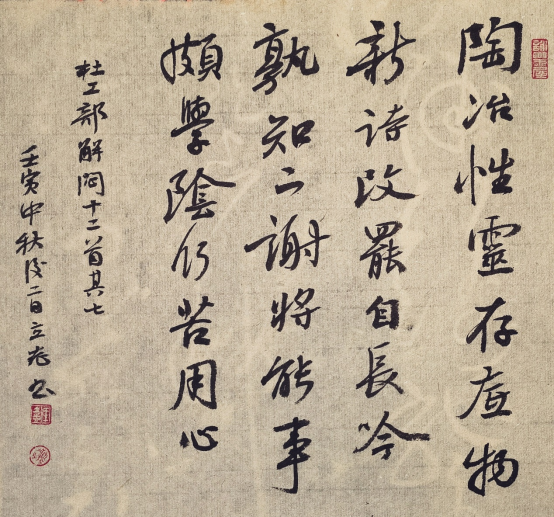 陶冶性靈存底物
新詩改罷自長吟
孰知二謝將能事
頗學陰何苦用心
杜工部解悶十二首其七
壬寅中秋後二日立书